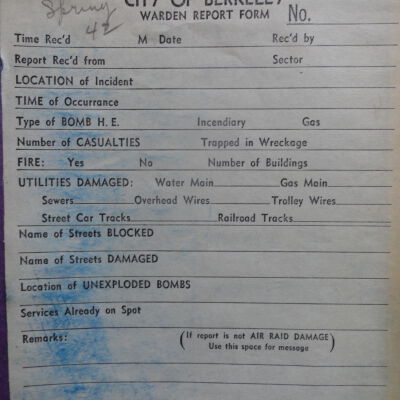 Spring
42
CITY OF BERKELEY
WARDEN REPORT FORM No.
Time Rec'd M Date Rec'd by
Report Rec'd from Sector
LOCATION of Incident
TIME of Occurrance
Type of BOMB H. E. Incendiary Gas
Number of CASUALTIES Trapped in Wreckage
FIRE: Yes No Number of Buildings
UTILITIES DAMAGED: Water Main Gas Main
Sewers Overhead Wires Trolley Wires
Street Car Tracks Railroad Tracks
Name of Streets BLOCKED
Name of Streets DAMAGED
Location of UNEXPLODED BOMBS
Services Already on Spot
Remarks: (If report is not AIR RAID DAMAGE
Use this space for message)